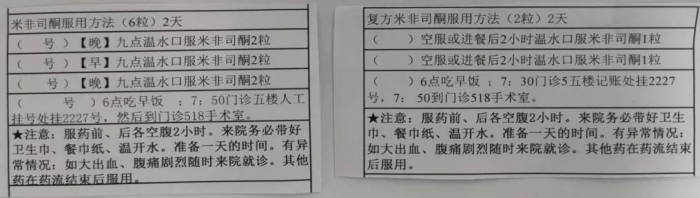 米非司酮服用方法（6粒）2天
（ 号）【晚】九点温水口服米非司酮2粒
（ 号）【早】九点温水口服米非司酮2粒
（ 号）【晚】九点温水口服米非司酮2粒
（ 号）6点吃早饭 ；7：50门诊五楼人工
挂号处挂2227号，然后到门诊518手术室。
★注意：服药前、后各空腹2小时。来院务必带好
卫生巾、餐巾纸、温开水。准备一天的时间。有异
常情况：如大出血、腹痛剧烈随时来院就诊。其他
药在药流结束后服用。
复方米非司酮服用方法（2粒）2天
（ ）空服或进餐后2小时温水口服米非司酮1粒
（ ）空服或进餐后2小时温水口服米非司酮1粒
（ ）6点吃早饭；7：30门诊5五楼记账处挂2227
号，7：50到门诊518手术室。
★注意：服药前、后各空腹2小时。来院务必带好
卫生巾、餐巾纸、温开水。准备一天的时间。有异常
情况：如大出血、腹痛剧烈随时来院就诊。其他药在药流结束
后服用。